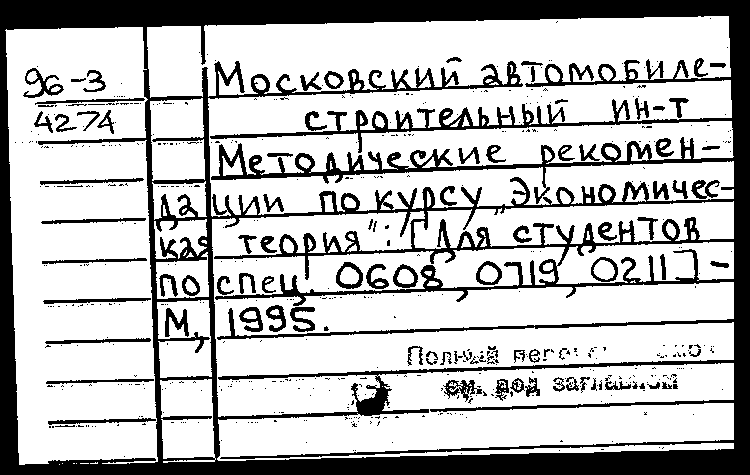 96-3
4274
Московский автомобиле-
строительный ин-т
Методические рекомен-
дации по курсу „Экономичес-
кая теория": [Для студентов
по спец. 0608, 0719, 0211] -
М., 1995.
Полный
см. под заглавием